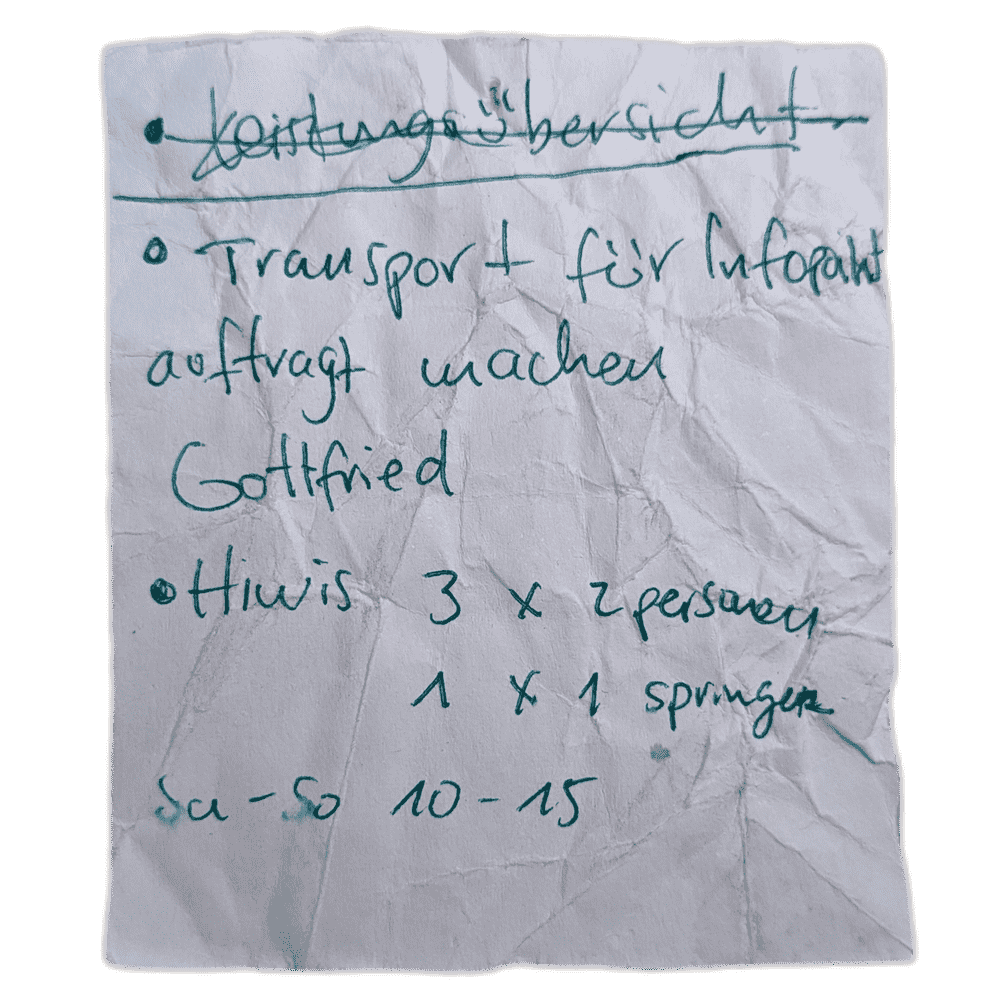 • Leistungsübersicht
• Transport für Infopakt
auftragt machen
Gottfried
• Hiwis 3 x 2 personen
1 x 1 springer
Sa - So 10 - 15